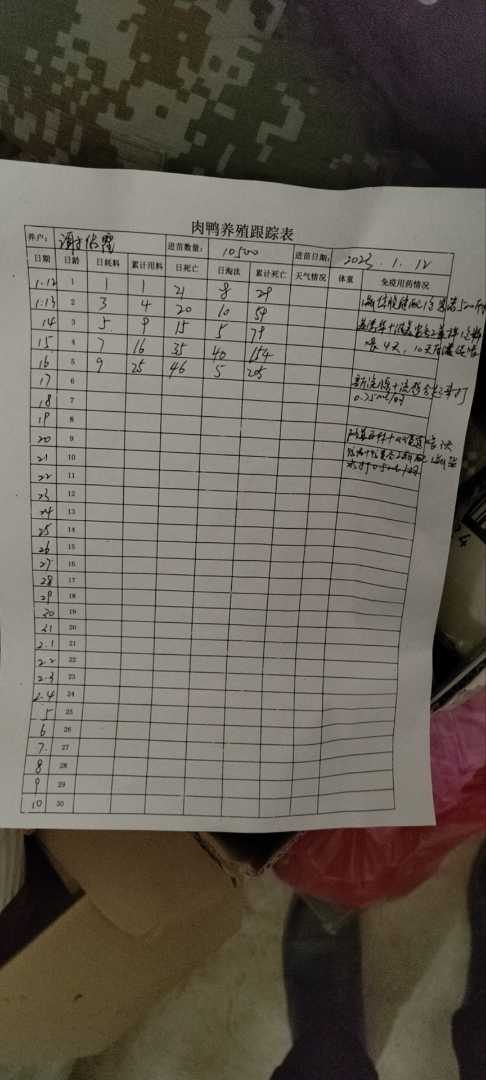 肉鸭养殖跟踪表
养户: 进苗数量: 10500 进苗日期: 2023.1.12
日期 日龄 日耗料 累计用料 日死亡 日淘汰 累计死亡 天气情况 体重 免疫用药情况
1.12 1 1 1 21 8 29
1.13 2 3 4 20 10 59
14 3 5 9 15 5 79
15 4 7 16 35 40 154 喂4天,10天后
16 5 9 25 46 5 205
17 6
18 7 0.25ml/
19 8
20 9
21 10
22 11
23 12
24 13
25 14
26 15
27 16
28 17
29 18
30 19
31 20
2.1 21
2.2 22
2.3 23
2.4 24
5 25
6 26
7 27
8 28
9 29
10 30